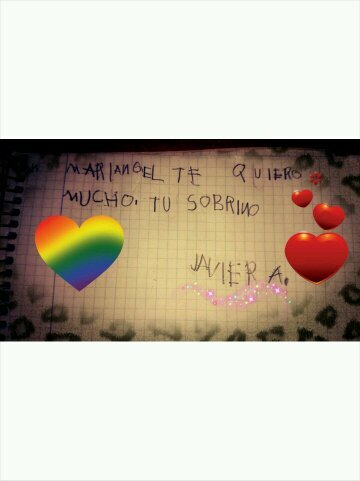 MARIANGEL TE QUIERO
MUCHO. TU SOBRINO
JAVIER A.